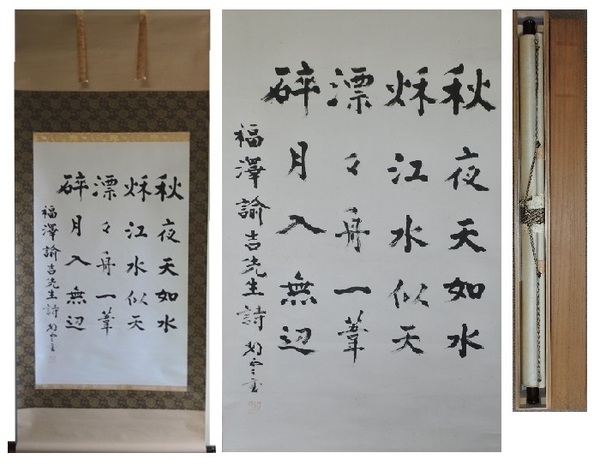 秋夜天如水
秌江水似天
漂々舟一葦
碎月入無辺
福澤諭吉先生詩
秋夜天如水
秌江水似天
漂々舟一葦
碎月入無辺
福澤諭吉先生詩